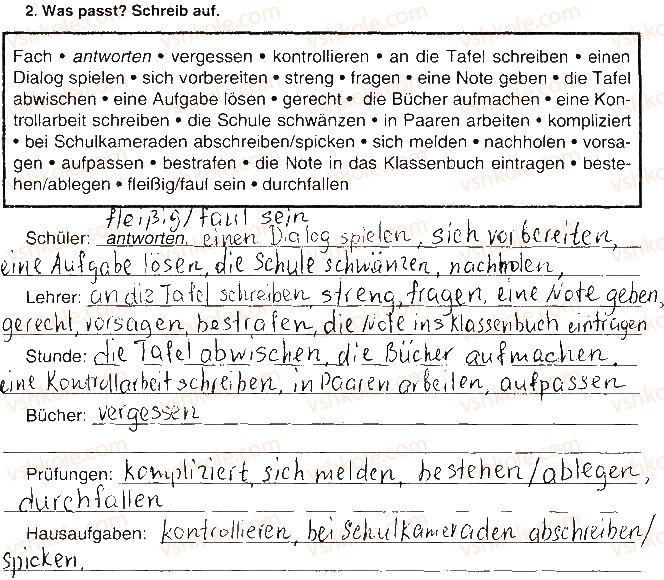 2. Was passt? Schreib auf.
Fach • antworten • vergessen • kontrollieren • an die Tafel schreiben • einen
Dialog spielen • sich vorbereiten • streng • fragen • eine Note geben • die Tafel
abwischen • eine Aufgabe lösen • gerecht • die Bücher aufmachen • eine Kon-
trollarbeit schreiben • die Schule schwänzen • in Paaren arbeiten • kompliziert
• bei Schulkameraden abschreiben/spicken • sich melden • nachholen • vorsa-
gen • aufpassen • bestrafen • die Note in das Klassenbuch eintragen • beste-
hen/ablegen • fleißig/faul sein • durchfallen
fleißig/faul sein
Schüler: antworten, einen Dialog spielen, sich vorbereiten,
eine Aufgabe lösen, die Schule schwänzen, nachholen,
Lehrer: an die Tafel schreiben, streng, fragen, eine Note geben,
gerecht, vorsagen, bestrafen, die Note ins Klassenbuch eintragen
Stunde: die Tafel abwischen, die Bücher aufmachen,
eine Kontrollarbeit schreiben, in Paaren arbeiten, aufpassen
Bücher: vergessen
Prüfungen: kompliziert, sich melden, bestehen/ablegen,
durchfallen
Hausaufgaben: kontrollieren, bei Schulkameraden abschreiben/
spicken,